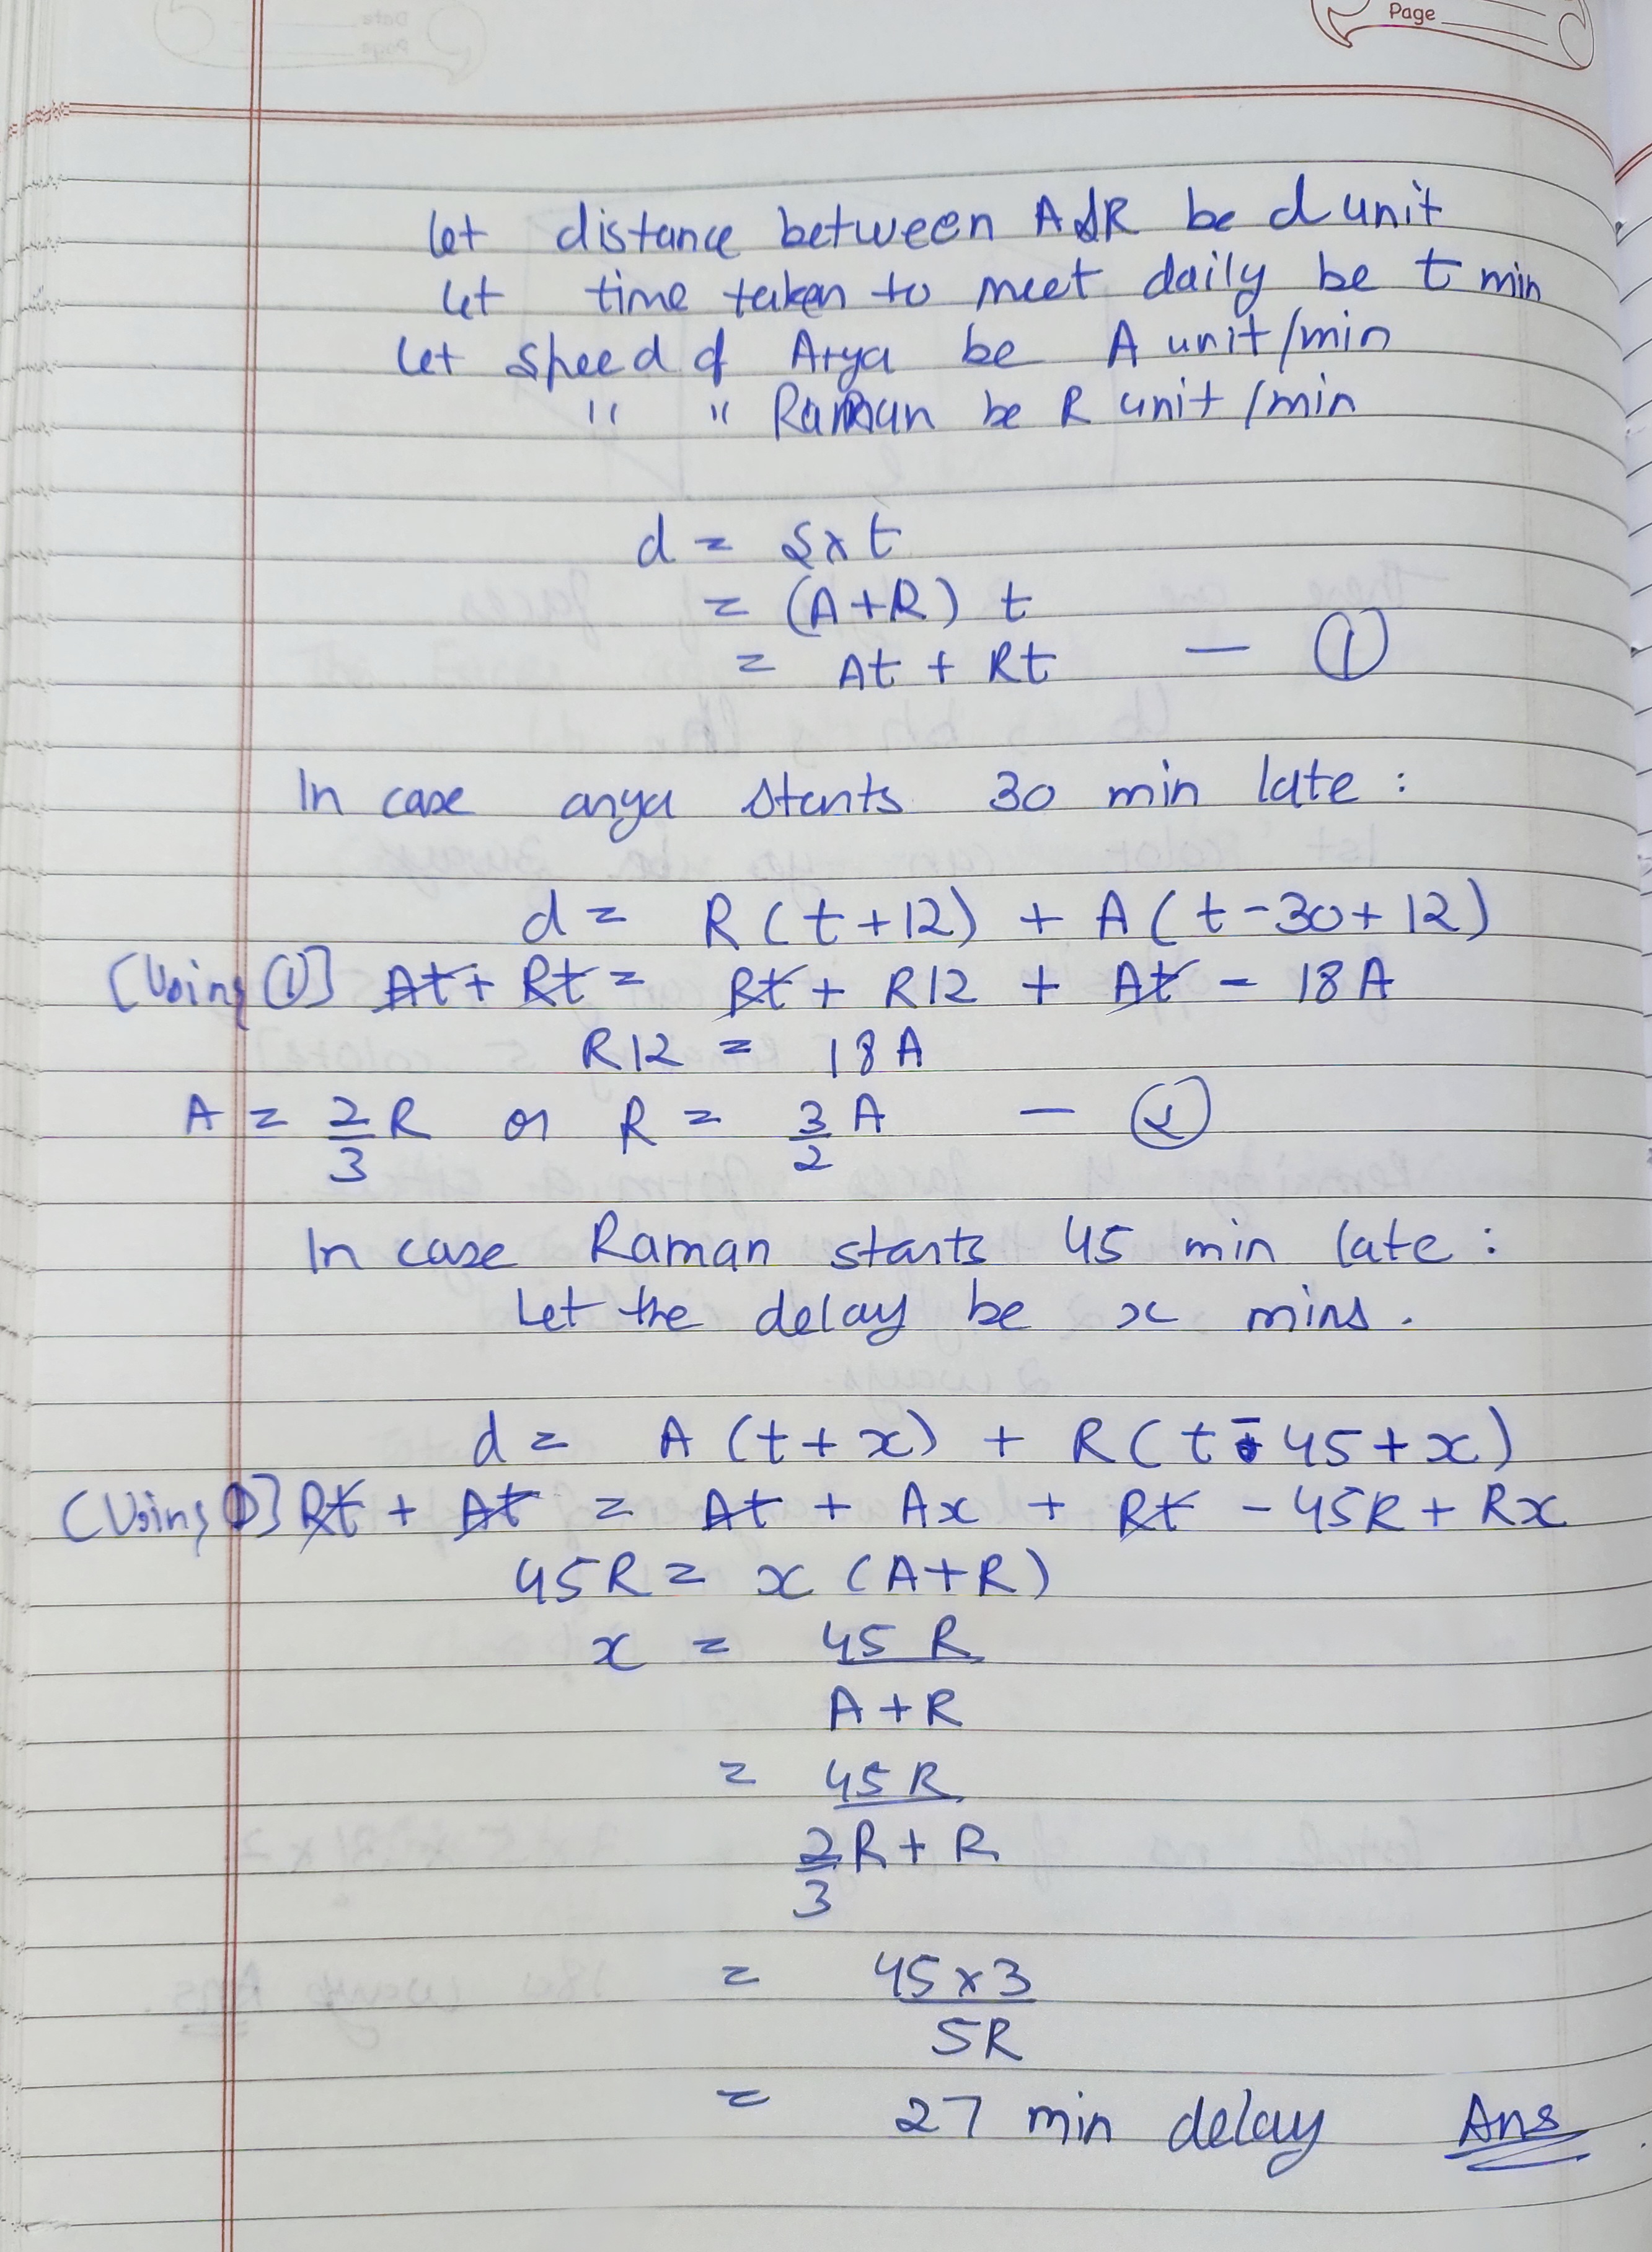 Page
let distance between A&R be d unit
let time taken to meet daily be t min
let speed of Arya be A unit/min
" " Raman be R unit/min
d = s×t
= (A+R) t
= At + Rt — ①
In case arya starts 30 min late :
d = R(t+12) + A(t-30+12)
[Using ①] At + Rt = Rt + R12 + At - 18A
R12 = 18A
A = 2/3 R or R = 3/2 A — ②
In case Raman starts 45 min late :
Let the delay be x mins.
d = A(t+x) + R(t-45+x)
[Using ①] Rt + At = At + Ax + Rt - 45R + Rx
45R = x(A+R)
x = 45R
A+R
= 45R
2/3 R + R
= 45×3
5R
= 27 min delay Ans